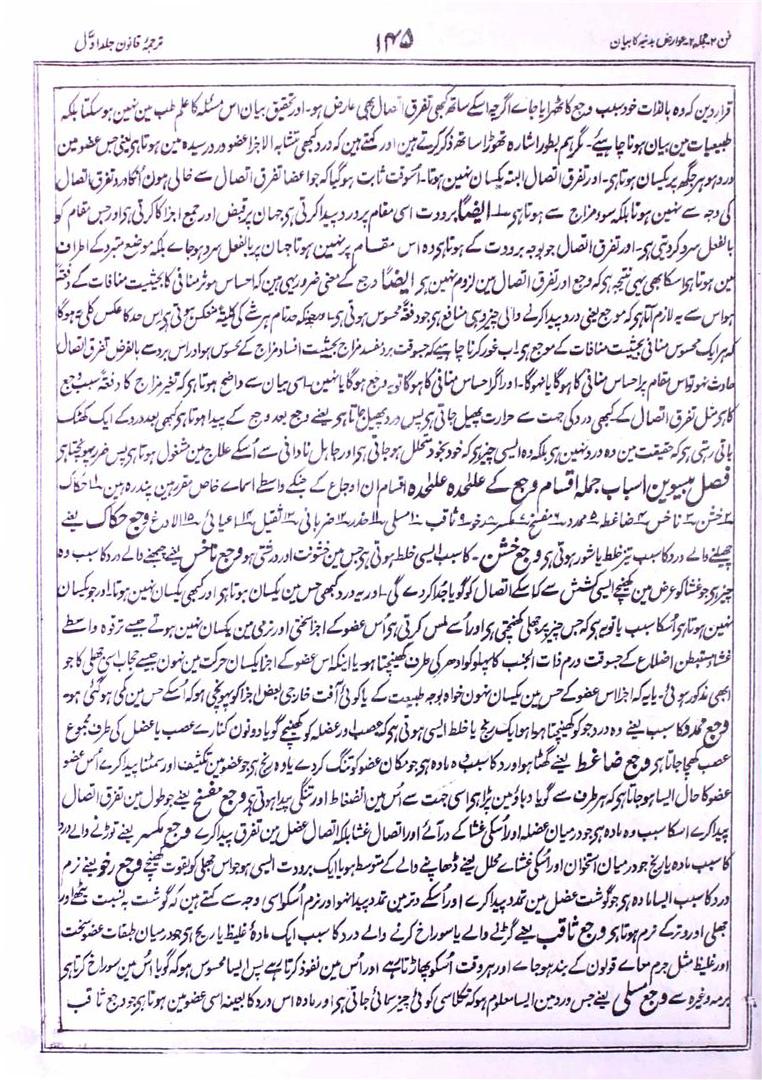 فن ۲۔ جملہ ۲۔ عوارض بدنیہ کا بیان
۱۴۵
ترجمۂ قانون جلد اوّل
قرار دین کہ وہ بالذات خود سبب وجع کا ٹھہرایا جاے اگرچہ اسکے ساتھ کبھی تفرق اتصال بھی عارض ہو۔ اور تحقیق بیان اس مسئلہ کا علم طب مین نہین ہوسکتا بلکہ
طبیعیات مین بیان ہونا چاہیے۔ مگر ہم بطور اشارہ تھوڑا ساتھ ذکر کرتے ہین اور کہتے ہین کہ درد کبھی متشابہ الاجزا عضو درد رسیدہ مین ہوتا ہی یعنی جس عضو مین
درد ہو ہر جگہ پر یکسان ہوتا ہی۔ اور تفرق اتصال البتہ یکسان نہین ہوتا۔ اُسوقت ثابت ہوگیا کہ جو اعضا تفرق اتصال سے خالی ہون اُنکا درد تفرق اتصال
کی وجہ سے نہین ہوتا بلکہ سوء مزاج سے ہوتا ہی۔ ایضًا برودت اسی مقام پر درد پیدا کرتی ہی جہان پر قبض اور جمع اجزا کا کرتی ہی اور جس مقام کو
بالفعل سرد کردیتی ہی۔ اور تفرق اتصال جو بوجہ برودت کے ہوتا ہی وہ اس مقام پر نہین ہوتا جہان پر بالفعل سرد ہوجاے بلکہ موضع متبرد کے اطراف
مین ہوتا ہی اسکا بھی یہی نتیجہ ہی کہ وجع اور تفرق اتصال مین لزوم نہین ہی ایضًا وجع کے معنی ضرور یہی ہین کہ احساس موثر منافی کا بحیثیت منافات کے دفعۃً
ہو اس سے یہ لازم آتا ہی کہ موجع یعنی درد پیدا کرنے والی چیز وہی منافع ہی جو دفعۃً محسوس ہوتی ہی
کہ ہر ایک محسوس منافی بحیثیت منافات کے موجع ہی اب غور کرنا چاہیے کہ جسوقت برد مفسد مزاج بحیثیت افساد مزاج کے محسوس ہو اور اس برد سے بالفرض تفرق اتصال
حادث نہو تو اس مقام پر احساس منافی کا ہوگا یا نہوگا۔ اور اگر احساس منافی کا ہوگا تو یہ وجع ہوگا یا نہین۔ اسی بیان سے واضح ہوتا ہی کہ تغیر مزاج کا دفعۃً سبب وجع
کا ہی مثل تفرق اتصال کے کبھی درد کی جہت سے حرارت پھیل جاتی ہی پس درد پھیل جاتا ہی یعنے وجع بعد وجع کے پیدا ہوتا ہی کبھی بعد درد کے ایک کھٹک
باقی رہتی ہی کہ حقیقت مین وہ درد نہین ہی بلکہ وہ ایسی چیز ہی کہ خود بخود متحلل ہوجاتی ہی اور جاہل نادانی سے اُسکے علاج مین مشغول ہوتا ہی پس ضرر پہونچتا ہی
فصل بیسوین اسباب جملہ اقسام وجع کے علٰحدہ علٰحدہ اقسام ان اوجاع کے جنکے واسطے اسماے خاص مقرر ہین پندرہ ہین ۱۔ حکاک
۲۔ خشن ۳۔ ناخس ۴۔ ضاغط ۵۔ ممدد ۶۔ مفسخ ۷۔ مکسر ۸۔ رخو ۹۔ ثاقب ۱۰۔ مسلی ۱۱۔ خدر ۱۲۔ ضربانی ۱۳۔ ثقیل ۱۴۔ اعیائی ۱۵۔ لاذع وجع حکاک یعنے
چھیلنے والے درد کا سبب تیز خلط یا شور ہوتی ہی وجع خشن۔ کا سبب ایسی خلط ہوتی ہی جس مین خشونت اور درشتی ہو وجع ناخس یعنے چبھنے والے درد کا سبب وہ
چیز ہی جو غشا کو عرض مین کھینچے ایسی کشش سے کہ اسکے اتصال کو گویا جدا کر دے گی۔ اور یہ درد کبھی حس مین یکسان ہوتا ہی اور کبھی یکسان نہین ہوتا۔ اور جو یکسان
نہین ہوتا ہی اُسکا سبب یا تو یہ ہی کہ جس چیز پر جھلی کھنچتی ہی اور اُسے لمس کرتی ہی اُس عضو کے اجزا سختی اور نرمی مین یکسان نہین ہوتے جیسے ترقوہ واسطے
غشا مستبطن اضلاع کے جسوقت ورم ذات الجنب کا پہلو کو ادھر کی طرف کھینچتا ہو۔ یا اینکہ اس عضو کے اجزا یکسان حرکت مین نہون جیسے حجاب اسی جھلی کا جو
ابھی مذکور ہوئی۔ یا یہ کہ اجزا اس عضو کے حس مین یکسان نہون خواہ بوجہ طبیعت کے یا کوئی آفت خارجی بعض اجزا کو پہونچی ہو کہ اُسکے حس مین کمی ہوگئی ہو۔
وجع ممدد کا سبب یعنے وہ درد جو کہ کھینچتا ہوا ہو ایک ریح یا خلط ایسی ہوتی ہی کہ عصب اور عضلہ کو کھینچے گویا دونون کنارے عصب یا عضل کی طرف مجموع
عصب کھچا جاتا ہی وجع ضاغط یعنے گھٹتا ہوا درد کا سبب وہ مادہ ہی جو مکان عضو کو تنگ کر دے یا وہ ریح ہی جو عضو مین تکثیف اور سمٹنا پیدا کرے اُس عضو
عضو کا حال ایسا ہوجاتا ہی کہ ہر طرف سے گویا دباؤ مین پڑا ہی اسی جہت سے اُس مین انضغاط اور تنگی پیدا ہوتی ہی وجع مفسخ یعنے جو طول مین تفرق اتصال
پیدا کرے اسکا سبب وہ مادہ ہی جو درمیان عضلہ اور اُسکی غشا کے در آئے اور اتصال غشا بلکہ اتصال عضل مین تفرق پیدا کرے وجع مکسر یعنے توڑنے والے درد
کا سبب مادہ یا ریح جو درمیان استخوان اور اُسکی غشاے محلل یعنے ڈھانپنے والے کے متوسط ہو یا ایک برودت ایسی ہو جو اس جھلی کو بقوت کھینچے وجع رخو یعنے نرم
درد کا سبب ایسا مادہ ہی جو گوشت عضل مین تمدد پیدا کرے اور اُسکے وتر مین تمدد پیدا نہو اور نرم اُسکو اسی وجہ سے کہتے ہین کہ گوشت بہ نسبت پٹھا اور
جھلی اور وتر کے نرم ہوتا ہی وجع ثاقب یعنے گڑنے والے یا سوراخ کرنے والے درد کا سبب ایک مادۂ غلیظ یا ریح ہی جو درمیان طبقات عضو سخت
اور غلیظ مثل جرم معاے قولون کے بند ہوجاے اور ہر وقت اُسکو پھاڑتا ہے اور اُس مین نفوذ کرتا ہے پس ایسا محسوس ہو کہ گویا اُس مین سوراخ کرتا ہی
برمہ وغیرہ سے وجع مسلی یعنے جس درد مین ایسا معلوم ہو کہ کوئی چیز سمائی جاتی ہی اور مادہ اس درد کا بعینہ اسی عضو مین ہوتا ہی جو وجع ثاقب